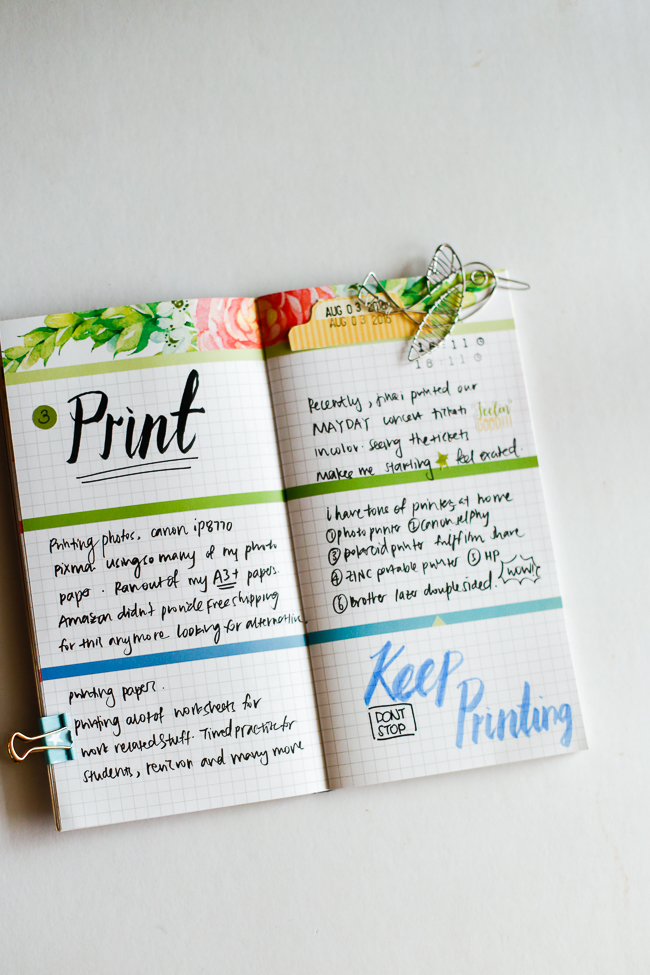 3
Print
Printing photos. Canon iP8770
Pixma. using so many of my photo
paper. Ran out of my A3+ papers.
Amazon didn't provide free shipping
for this anymore. looking for alternative
printing papers.
printing a lot of worksheets for
work related stuff. Timed practice for
students, revision and many more
AUG 03 2015
AUG 03 2015
18:11
18:11
Recently, printed our
MAYDAY concert tickets
in color. Seeing the tickets
makes me starting feel excited.
feelin'
GOOD
i have tons of printers at home
① photo printer ② Canon selphy
③ polaroid printer fujifilm share
④ ZINC portable printer ⑤ HP
⑥ Brother lazer double sided.
WOW!
Keep
Printing
DONT
STOP